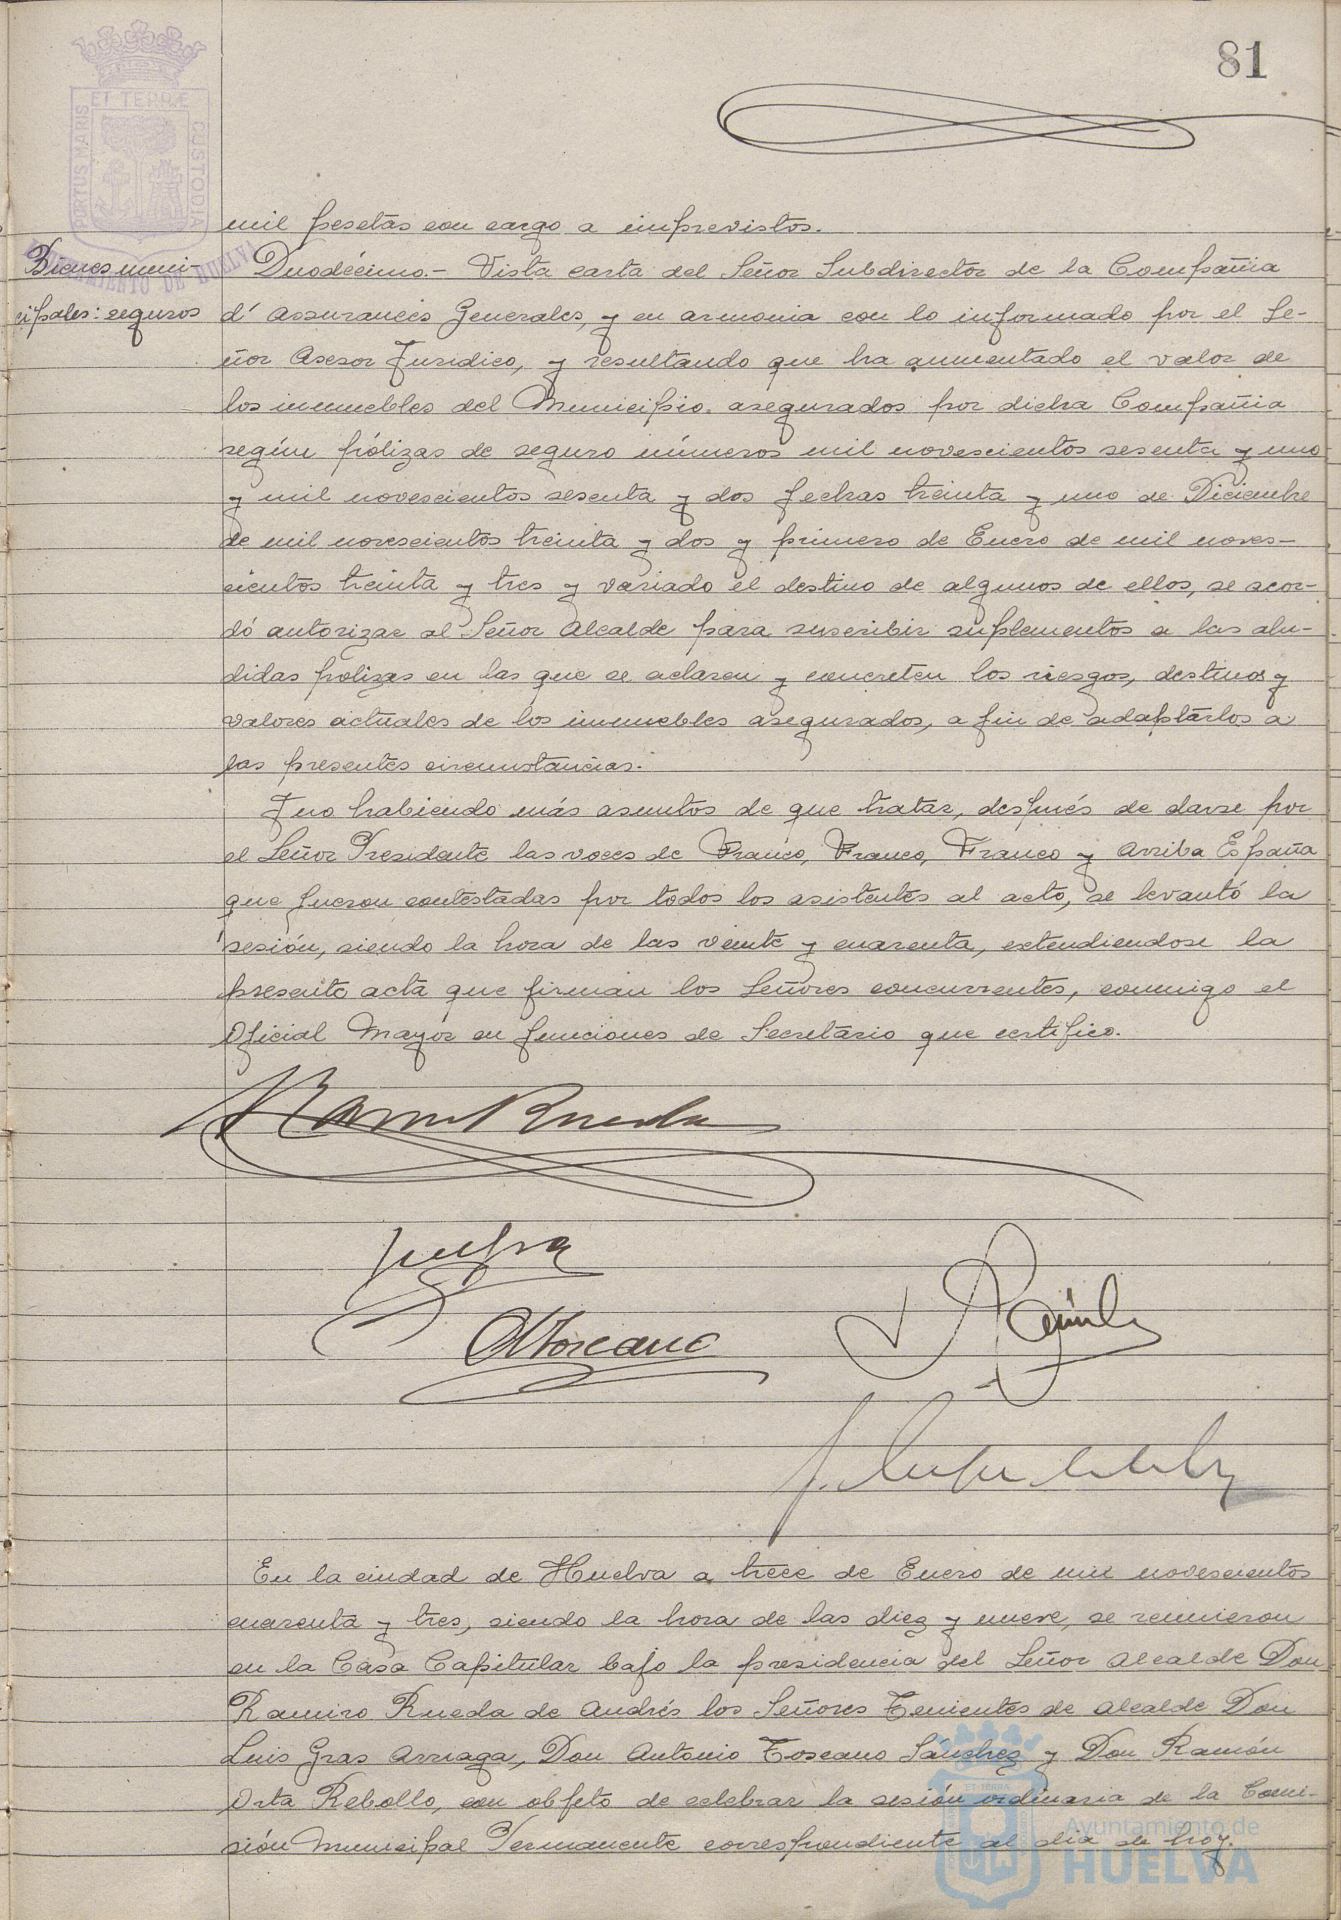 81
PORTUS MARIS
ET TERRÆ
CUSTODIA
AYUNTAMIENTO DE HUELVA
mil pesetas con cargo a imprevistos.
Bienes muni-
cipales: seguros
Duodécimo.- Vista carta del Señor Subdirector de la Compañia
d' Assurances Generales, y en armonia con lo informado por el Se-
ñor Asesor Juridico, y resultando que ha aumentado el valor de
los inmuebles del Municipio asegurados por dicha Compañia
según pólizas de seguro números mil novescientos sesenta y uno
y mil novescientos sesenta y dos fechas treinta y uno de Diciembre
de mil novescientos treinta y dos y primero de Enero de mil noves-
cientos treinta y tres y variado el destino de algunos de ellos, se acor-
dó autorizar al Señor Alcalde para suscribir suplementos a las alu-
didas polizas en las que se aclaren y concreten los riesgos, destinos y
valores actuales de los inmuebles asegurados, a fin de adaptarlos a
las presentes circunstancias.
Y no habiendo más asuntos de que tratar, después de darse por
el Señor Presidente las voces de Franco, Franco, Franco y Arriba España
que fueron contestadas por todos los asistentes al acto, se levantó la
sesión, siendo la hora de las veinte y cuarenta, extendiendose la
presente acta que firman los Señores concurrentes, conmigo el
Oficial Mayor en funciones de Secretario que certifico.
Ramiro Rueda
A Toscano
En la ciudad de Huelva a trece de Enero de mil novescientos
cuarenta y tres, siendo la hora de las diez y nueve, se reunieron
en la Casa Capitular bajo la presidencia del Señor Alcalde Don
Ramiro Rueda de Andrés los Señores Tenientes de Alcalde Don
Luis Gras Arruaga, Don Antonio Toscano Sánchez y Don Ramón
Orta Rebollo, con objeto de celebrar la sesión ordinaria de la Comi-
sión Municipal Permanente correspondiente al dia de hoy.
Ayuntamiento de
HUELVA